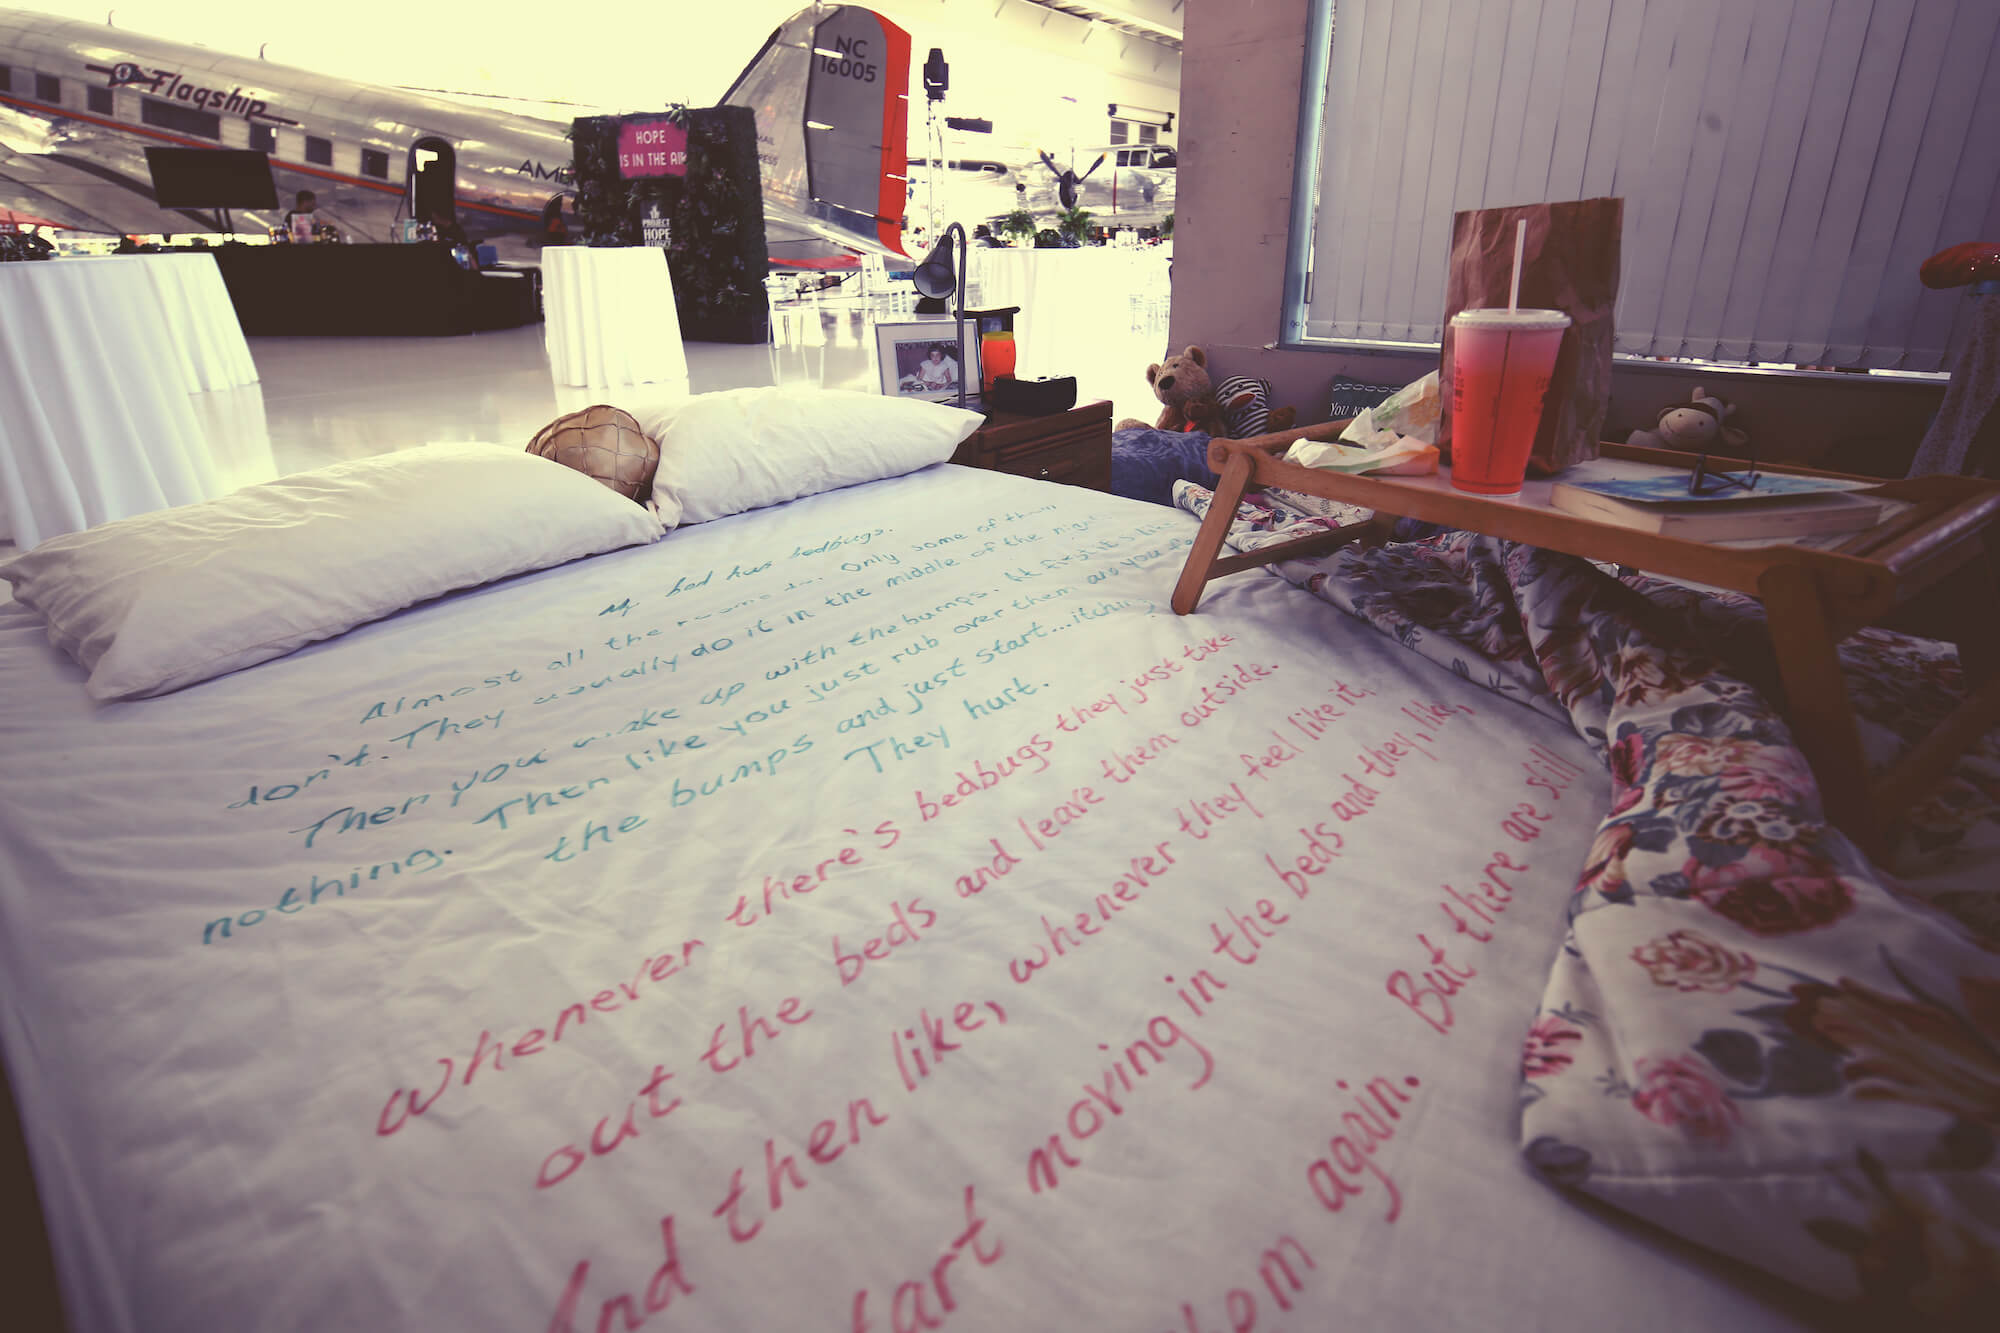 Flagship
NC
16005
HOPE
IS IN THE AIR
PROJECT
HOPE
ALLIANCE
My bed has bedbugs.
Almost all the rooms Only some of them
don't. They usually do it in the middle of the night
Then you wake up with the bumps. At first it's like
nothing. Then like you just rub over them and you
the bumps and just start...itching
They hurt.
Whenever there's bedbugs they just take
out the beds and leave them outside.
And then like, whenever they feel like it,
start moving in the beds and they, like,
again. But there are still